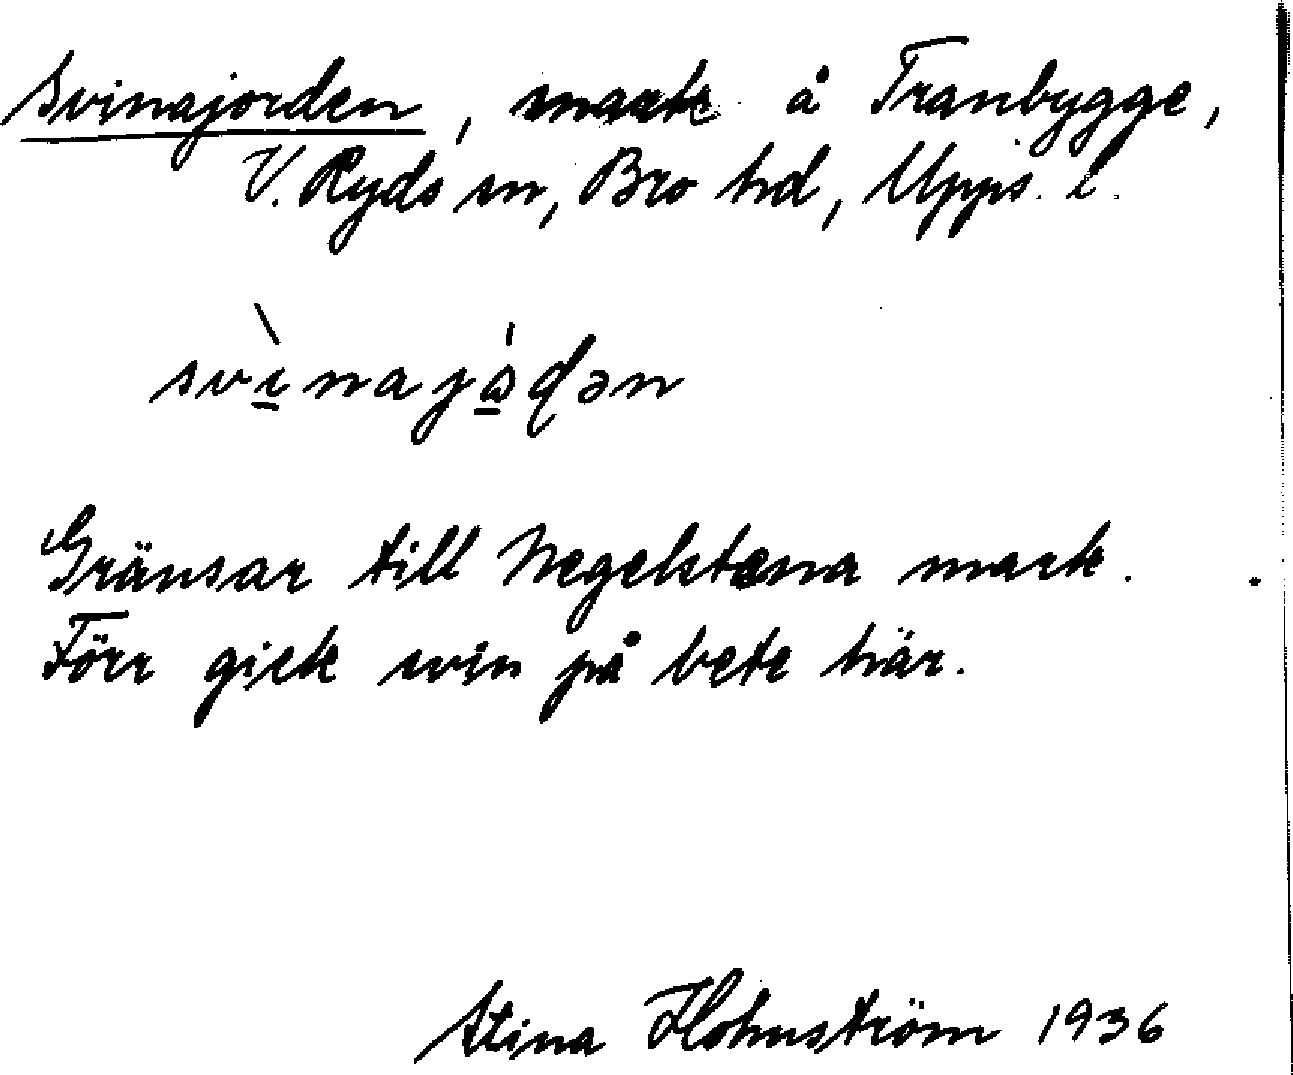 Svinajorden, mark å Tranbygge,
V. Ryds sn, Bro hd, Upps. l.
Gränsar till Negelstena mark.
Förr gick svin på bete här.
Stina Holmström 1936